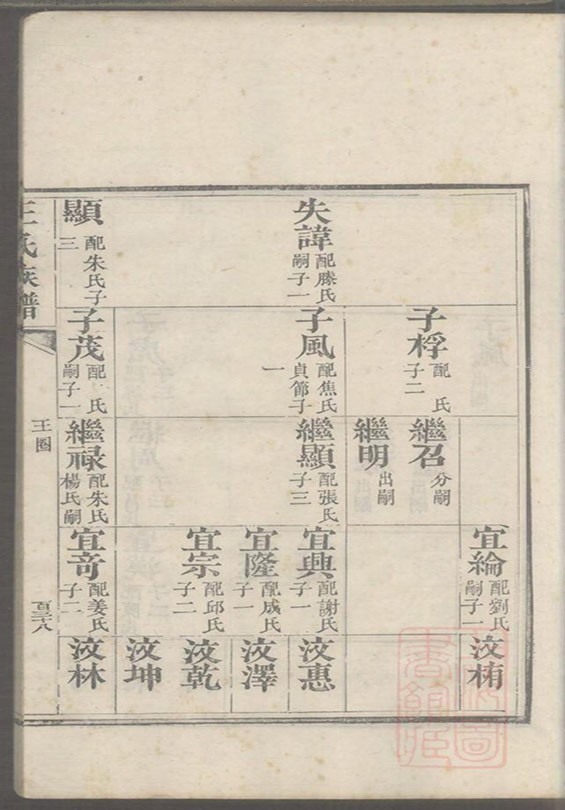 失諱 配滕氏嗣子一
顯 配朱氏子三
子桴 配 氏子二
子風 配焦氏貞節子一
子茂 配 氏嗣子一
繼召 分嗣
繼明 出嗣
繼顯 配張氏子三
繼祿 配朱氏楊氏嗣
宜綸 配劉氏嗣子一
宜興 配謝氏子一
宜隆 配成氏子一
宜宗 配邱氏子二
宜奇 配姜氏子二
汶楠
汶惠
汶澤
汶乾
汶坤
汶林
王氏族譜
王圈
百三十八